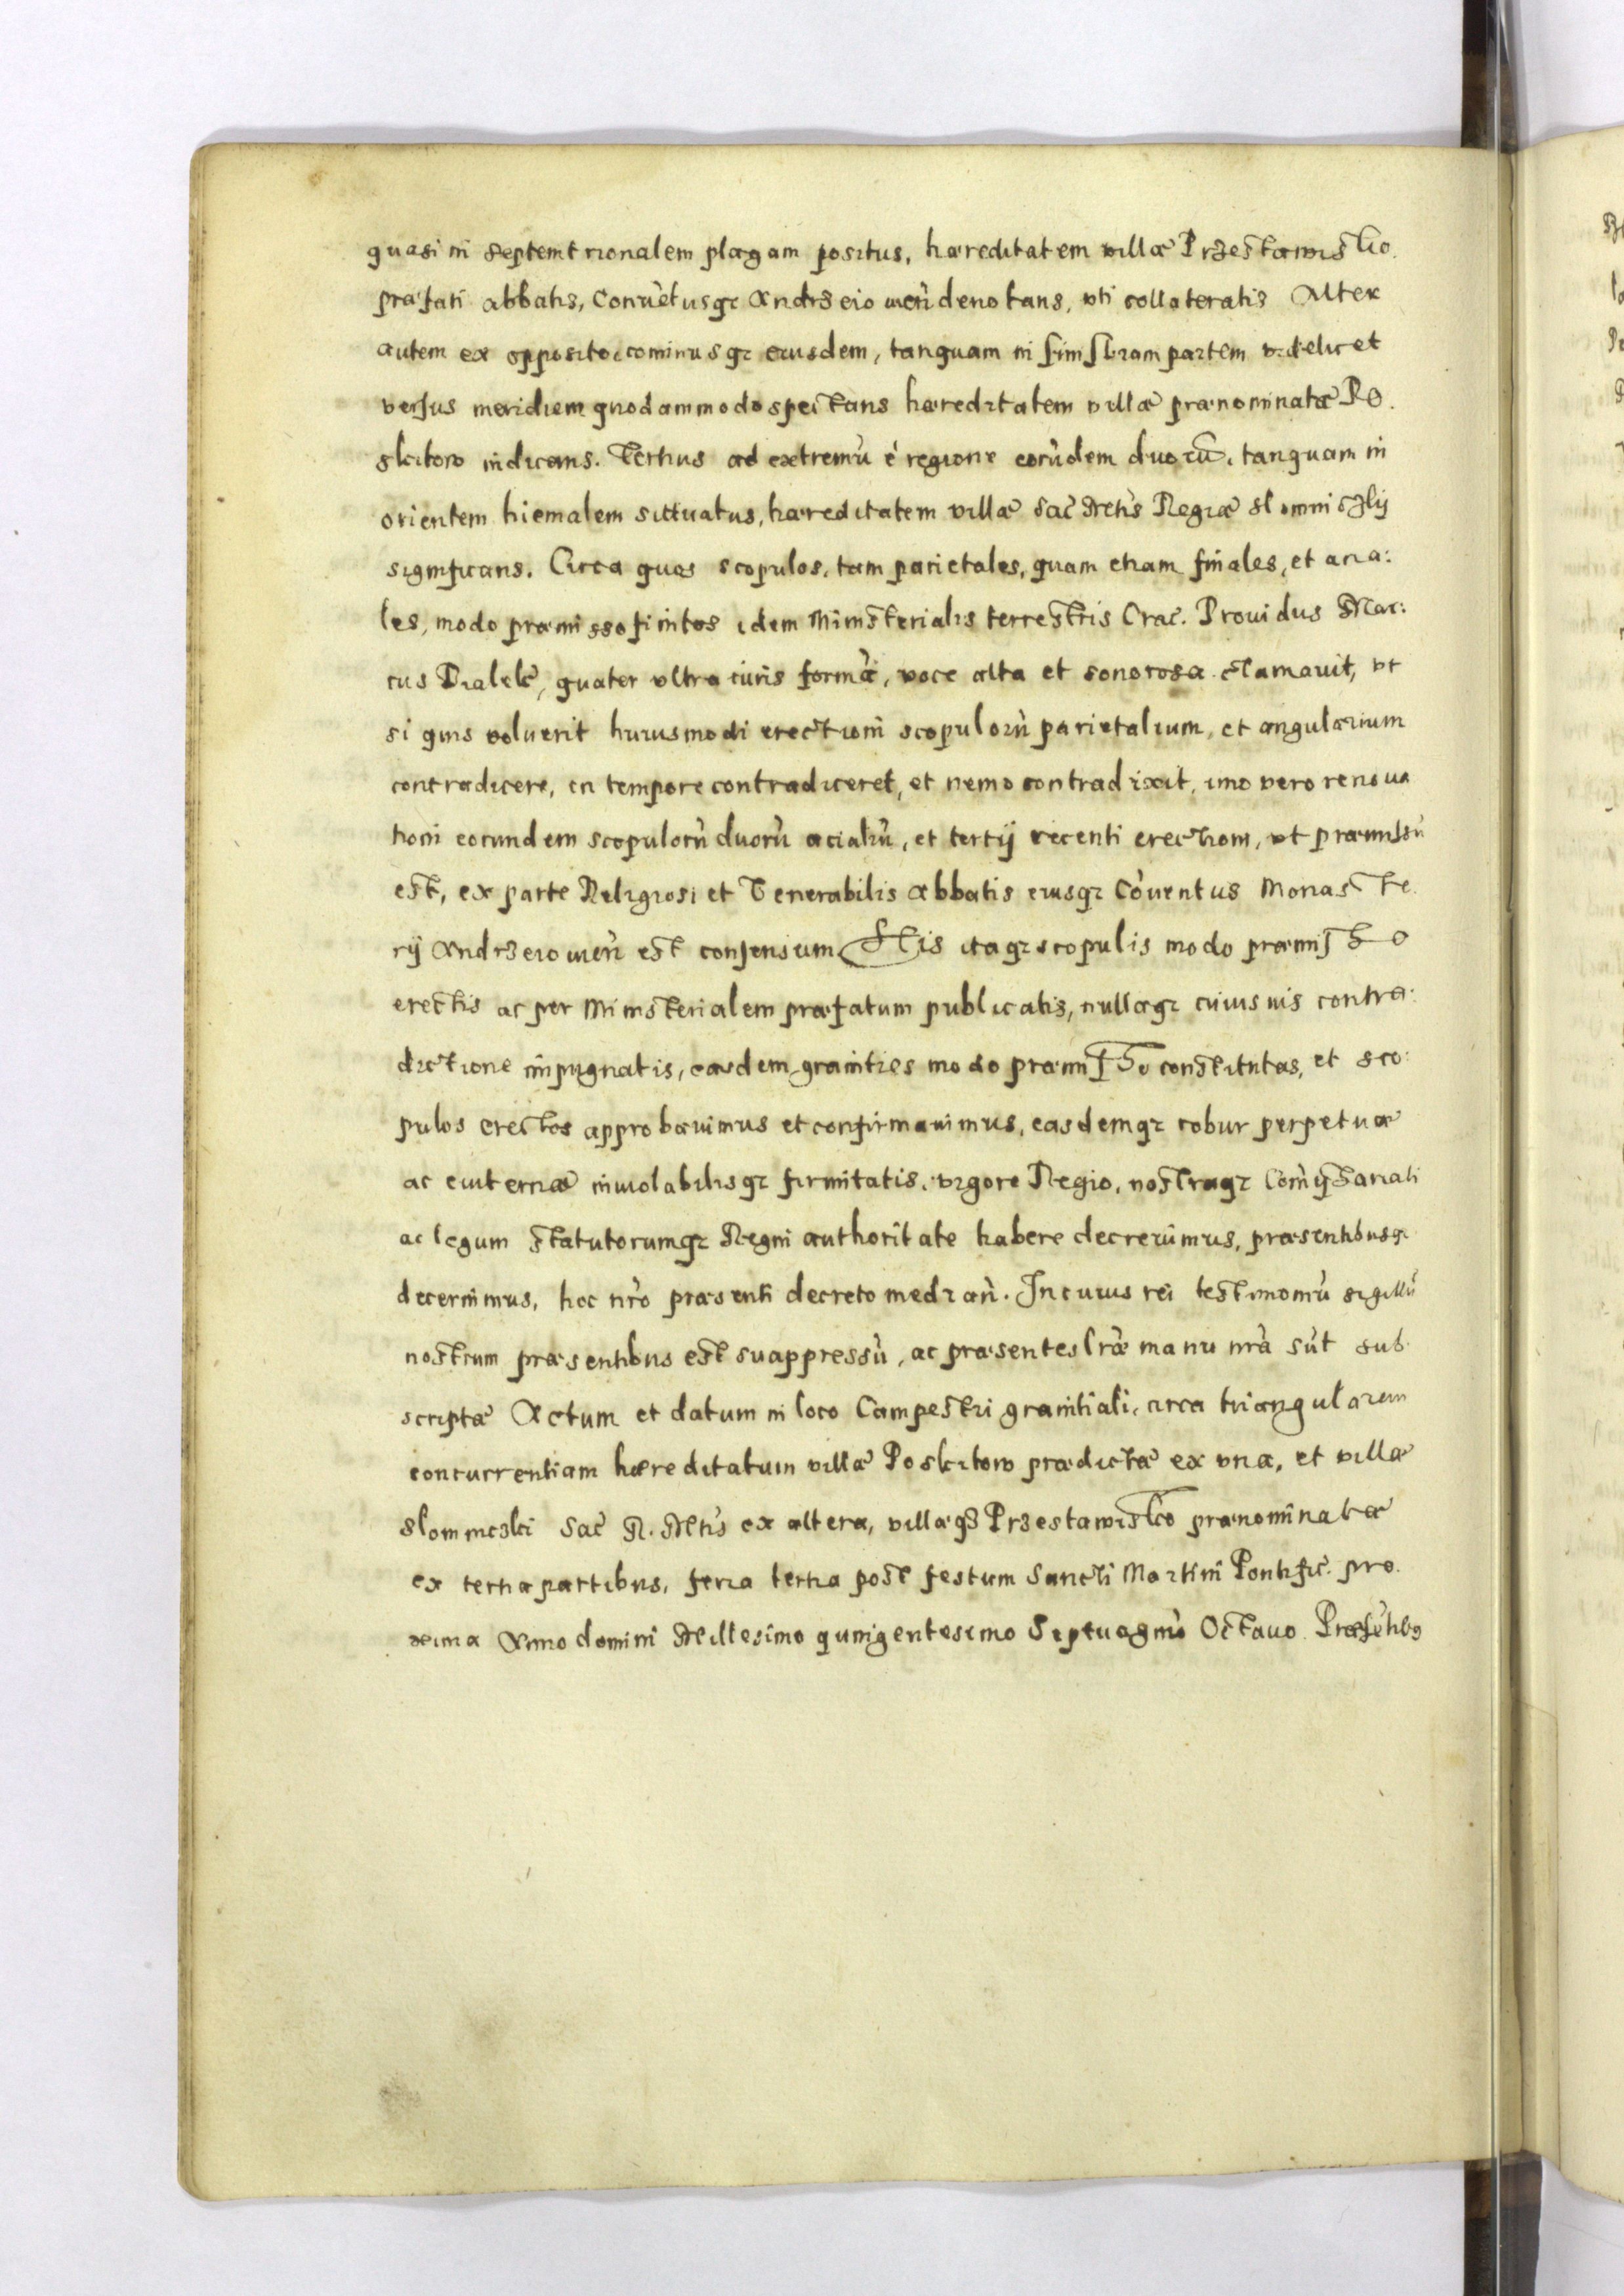 quasi in septemtrionalem plagam positus, hæreditatem villæ Przestawisko
præfati abbatis, Convētusq; Andrzeiowieñ denotans, vti collateralis Alter
autem ex opposito cominusq; eiusdem, tanquam in sinistram partem videlicet
versus meridiem quodammodo spectans hæreditatem villæ prænominatæ Po.
skitow indicans. Tertius ad extremũ è regione eorũdem duorũ, tanquam in
orientem hiemalem sittuatus, hæreditatem villæ Sac̃ Mtis Regiæ
significans. Circa quos scopulos, tam parietales, quam etiam finales, et acia:
les, modo præmisso finitos idem Ministerialis terrestris Crac̃. Prouidus Mar:
cus quater vltra iuris formã, voce alta et sonorosa clamauit, vt
si quis voluerit huiusmodi erectioni scopulorũ parietalium, et angularium
contradicere, in tempore contradiceret, et nemo contradixit, imo vero renoua
tioni eorundem scopulorũ duorũ acialiũ, et tertij recenti erectioni, vt præmissũ
est, ex parte Religiosi et Venerabilis abbatis eiusq; Cõuentus Monaste.
rij Andrzeiowieñ est consensum His itaq; scopulis modo præmisso
erectis ac per Ministerialem præfatum publicatis, nullaq; cuiusuis contra:
dictione impugnatis, easdem granities modo præmisso constitutas, et sco:
pulos erectos approbauimus et confirmauimus, easdemq; robur perpetuæ
ac euiternæ inuiolabilisq; firmitatis, vigore Regio, nostraq; Com̃issariali
ac legum statutorumq; Regni authoritate habere decreuimus, præsentibusq;
decernimus, hoc nr̃o præsenti decreto mediañ. In cuius rei testimoniũ sigillũ
nostrum præsentibus est suappressũ, ac præsentes lr̃æ manu nr̃a sũt sub.
scriptæ Actum et datum in loco Campestri granitiali, circa triangularem
concurrentiam hæreditatum villæ Poskitow prædictæ ex vna, et villæ
Sac̃ R. Mtis ex altera, villæq; Przestawisko prænominatæ
ex tertia partibus, feria tertia post festum Sancti Martini Pontific̃. pro.
xima Anno domini Millesimo quingentesimo Septuagmõ Octauo Præsẽtibꝰ